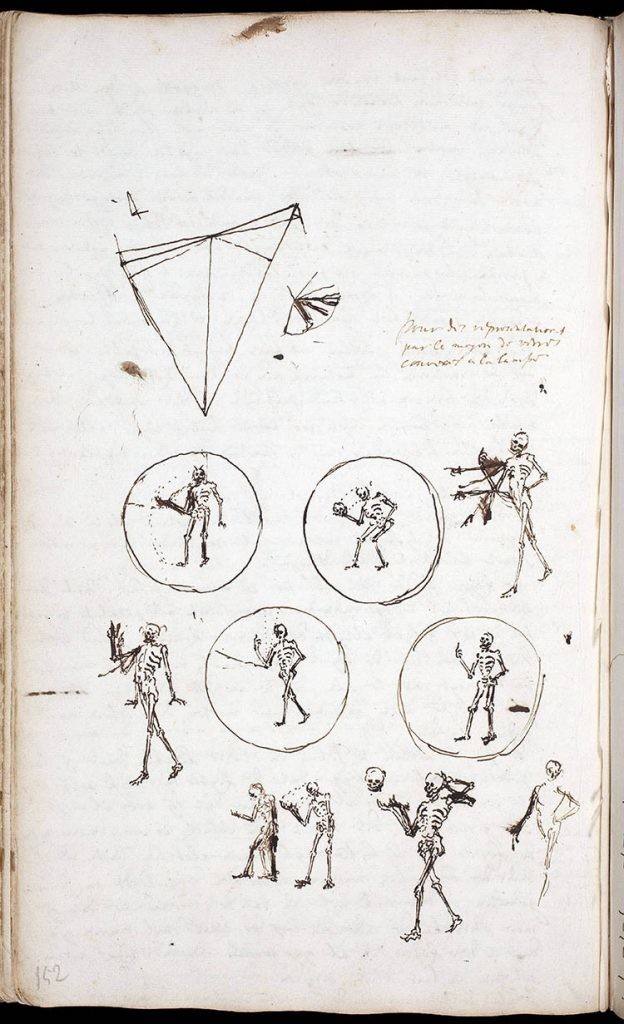 pour des representations
par le moyen de verres
convexes a la lampe
152